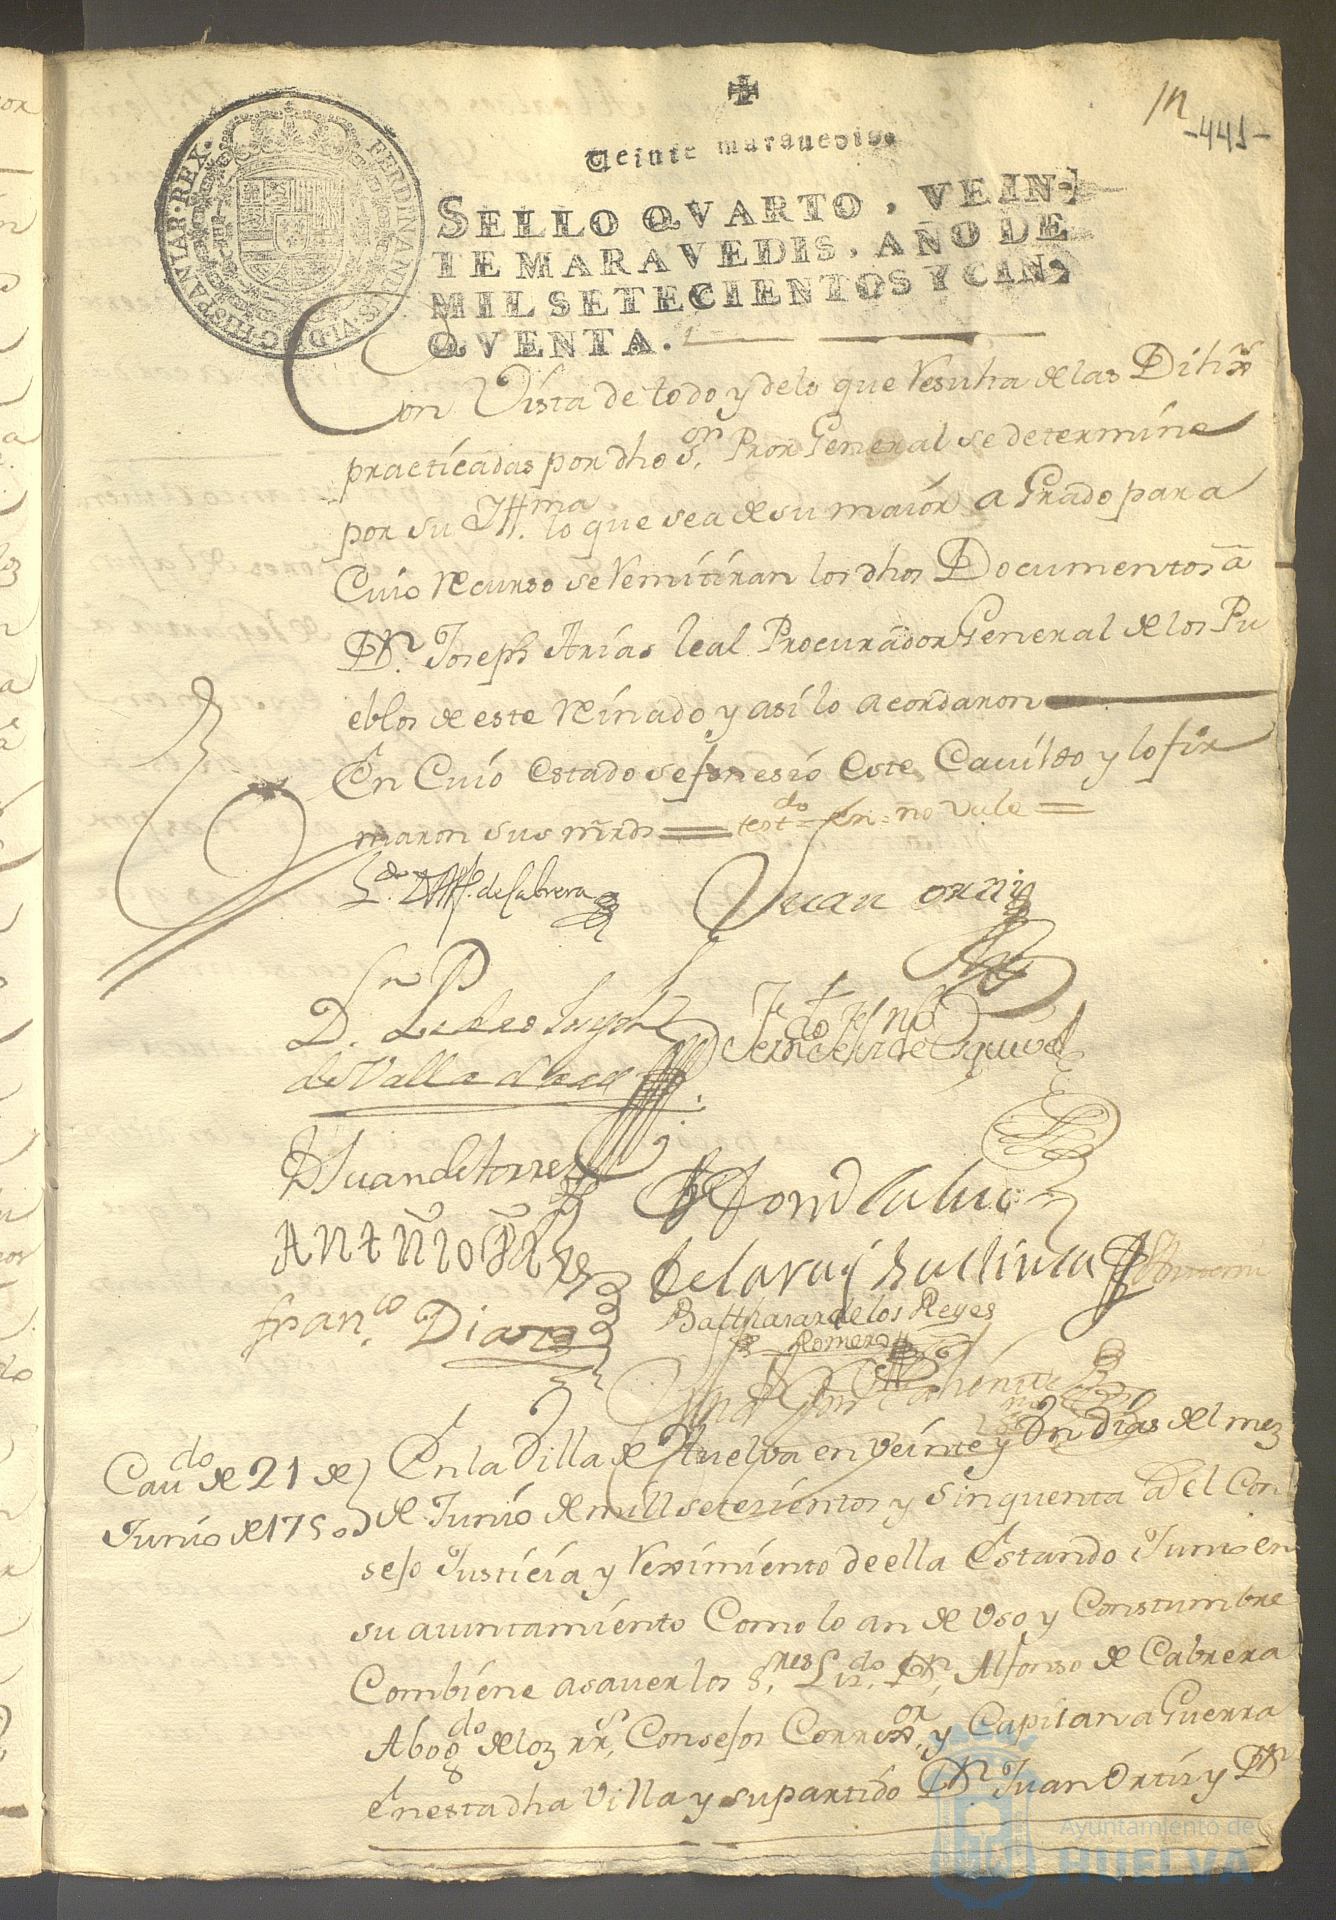 -441-
Veinte maravedis.
SELLO QVARTO, VEIN-
TE MARAVEDIS, AÑO DE
MIL SETECIENTOS Y CIN,
QVENTA.
FERDINANDUS·VI·D·G·HISPANIAR·REX·
Con Vista de todo y delo que Resulta de las Dilixs
practicadas por dho Sor. Pror General se determine
por su Illma. lo que sea de su maior a Grado para
Cuio Recurso se Remitiran los dhos Documentos â
Dn. Joseph Arias leal Procurador General de los Pu
eblos de este Reinado y asi lo acordaron
En Cuio Estado se fenesio Este Cavildo y lo fir
maron sus mrds = testdo = en = no vale =
Ldo. Dn Alfo. de Cabrera
Juan ortiz
Dn. Pedro Joseph
de Valladares
Juan de torres
Antonio
franco. Diaz
Balthasar de los Reyes
Romero
Cavdo de 21 de
Junio de 1750
En la Villa de Huelva en veinte y un dias del mez
de Junio de mill setezientos y sinquenta el Con
sejo Justicia y Reximiento de ella Estando Juntos en
su aiuntamiento Como lo an de Uso y Constumbre
Combiene a saver los Sres. Lizdo. Dn. Alfonso de Cabrera
Abogdo de loz RRs. Consejos Correxor. y Capitan a Guerra
en esta dha Villa y su partido Dn Juan Ortiz y Dn
Ayuntamiento de
HUELVA